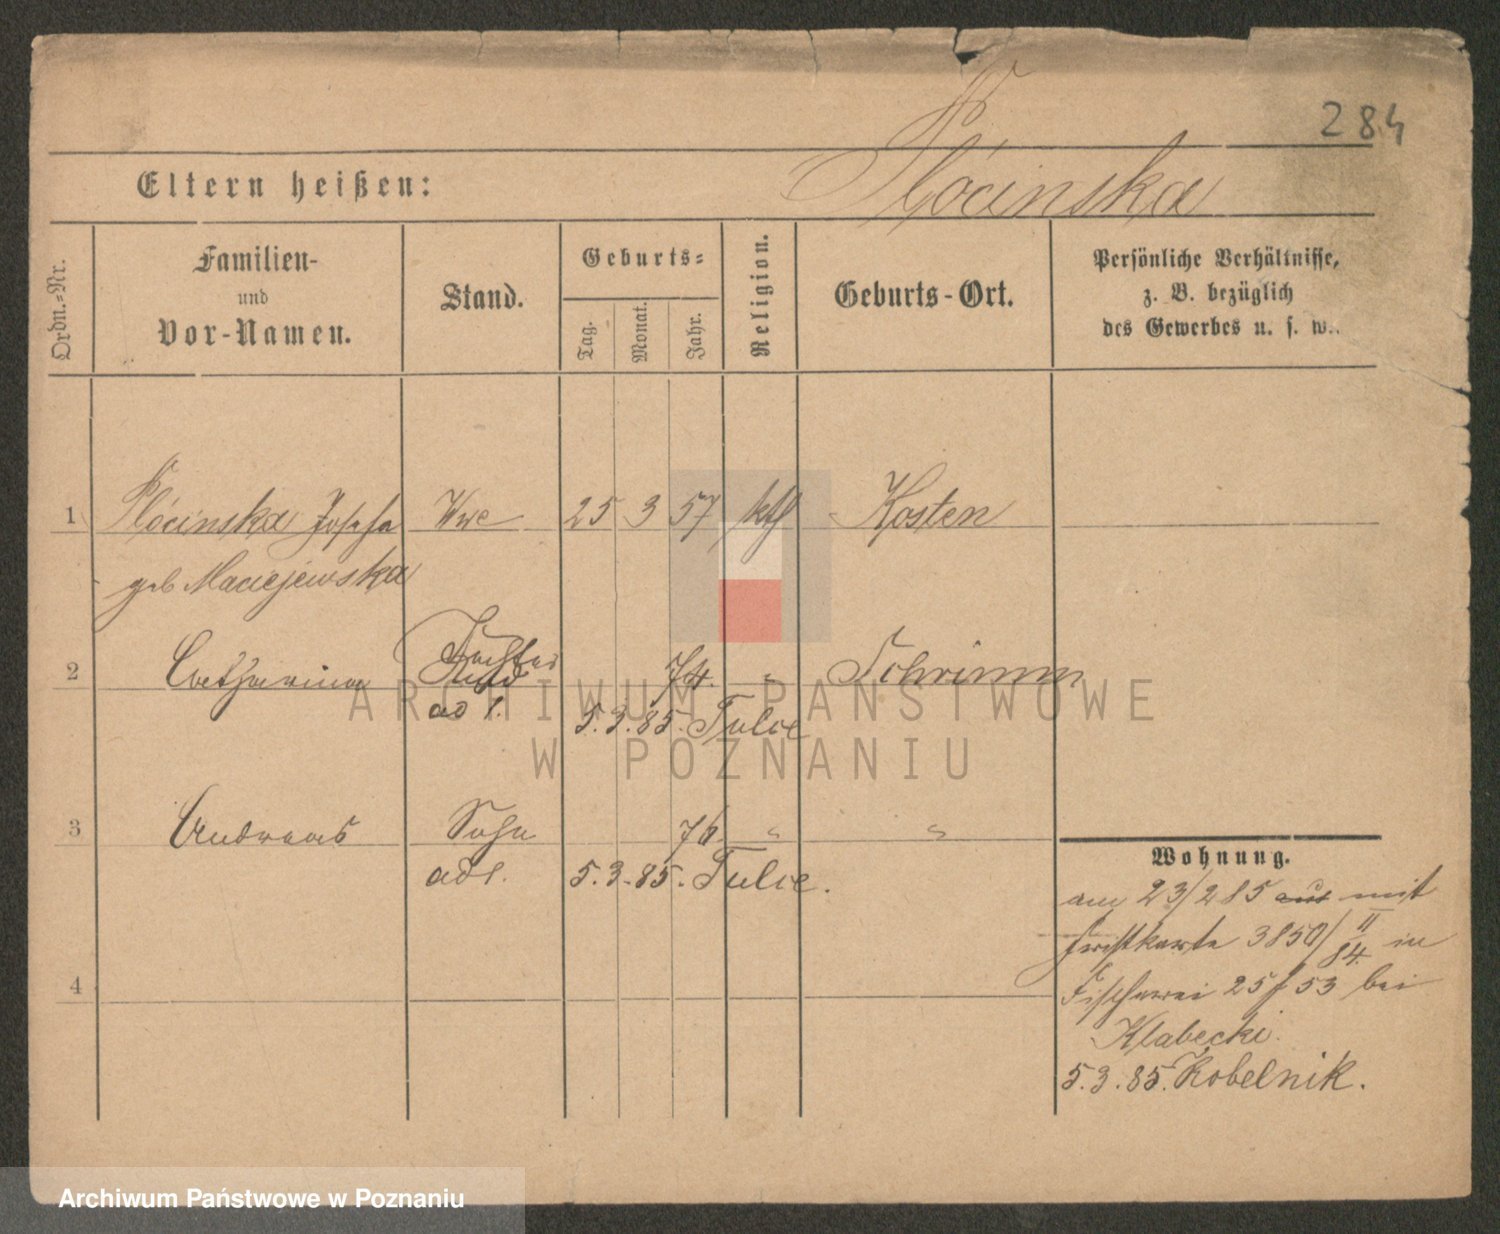 284
Płócinska
Eltern heißen:
Ordn.-Nr.
Familien-
und
Vor-Namen.
Stand.
Geburts-
Tag.
Monat.
Jahr.
Religion.
Geburts-Ort.
Persönliche Verhältnisse,
z. B. bezüglich
des Gewerbes u. s. w.
1 Płócinska Josepha Wwe 25 3 57 kth Kosten
geb Maciejewska
2 Catharina Tochter 74. " Schrimm
ad l. 5.3.85. Tulce
3 Andreas Sohn 76. " "
adl. 5.3.85. Tulce.
4
Wohnung.
am 23/2 85 aus mit
Fristkarte 3850/II 84. in
Fischerei 25 f 53 bei
Klabecki.
5.3.85. Kobelnik.
ARCHIWUM PAŃSTWOWE
W POZNANIU
Archiwum Państwowe w Poznaniu